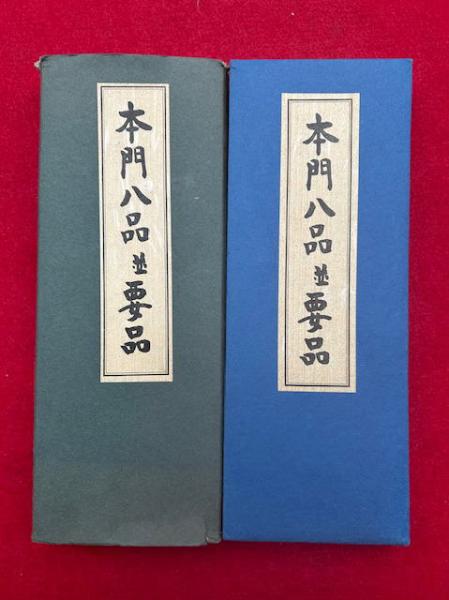 本門八品並要品
本門八品並要品